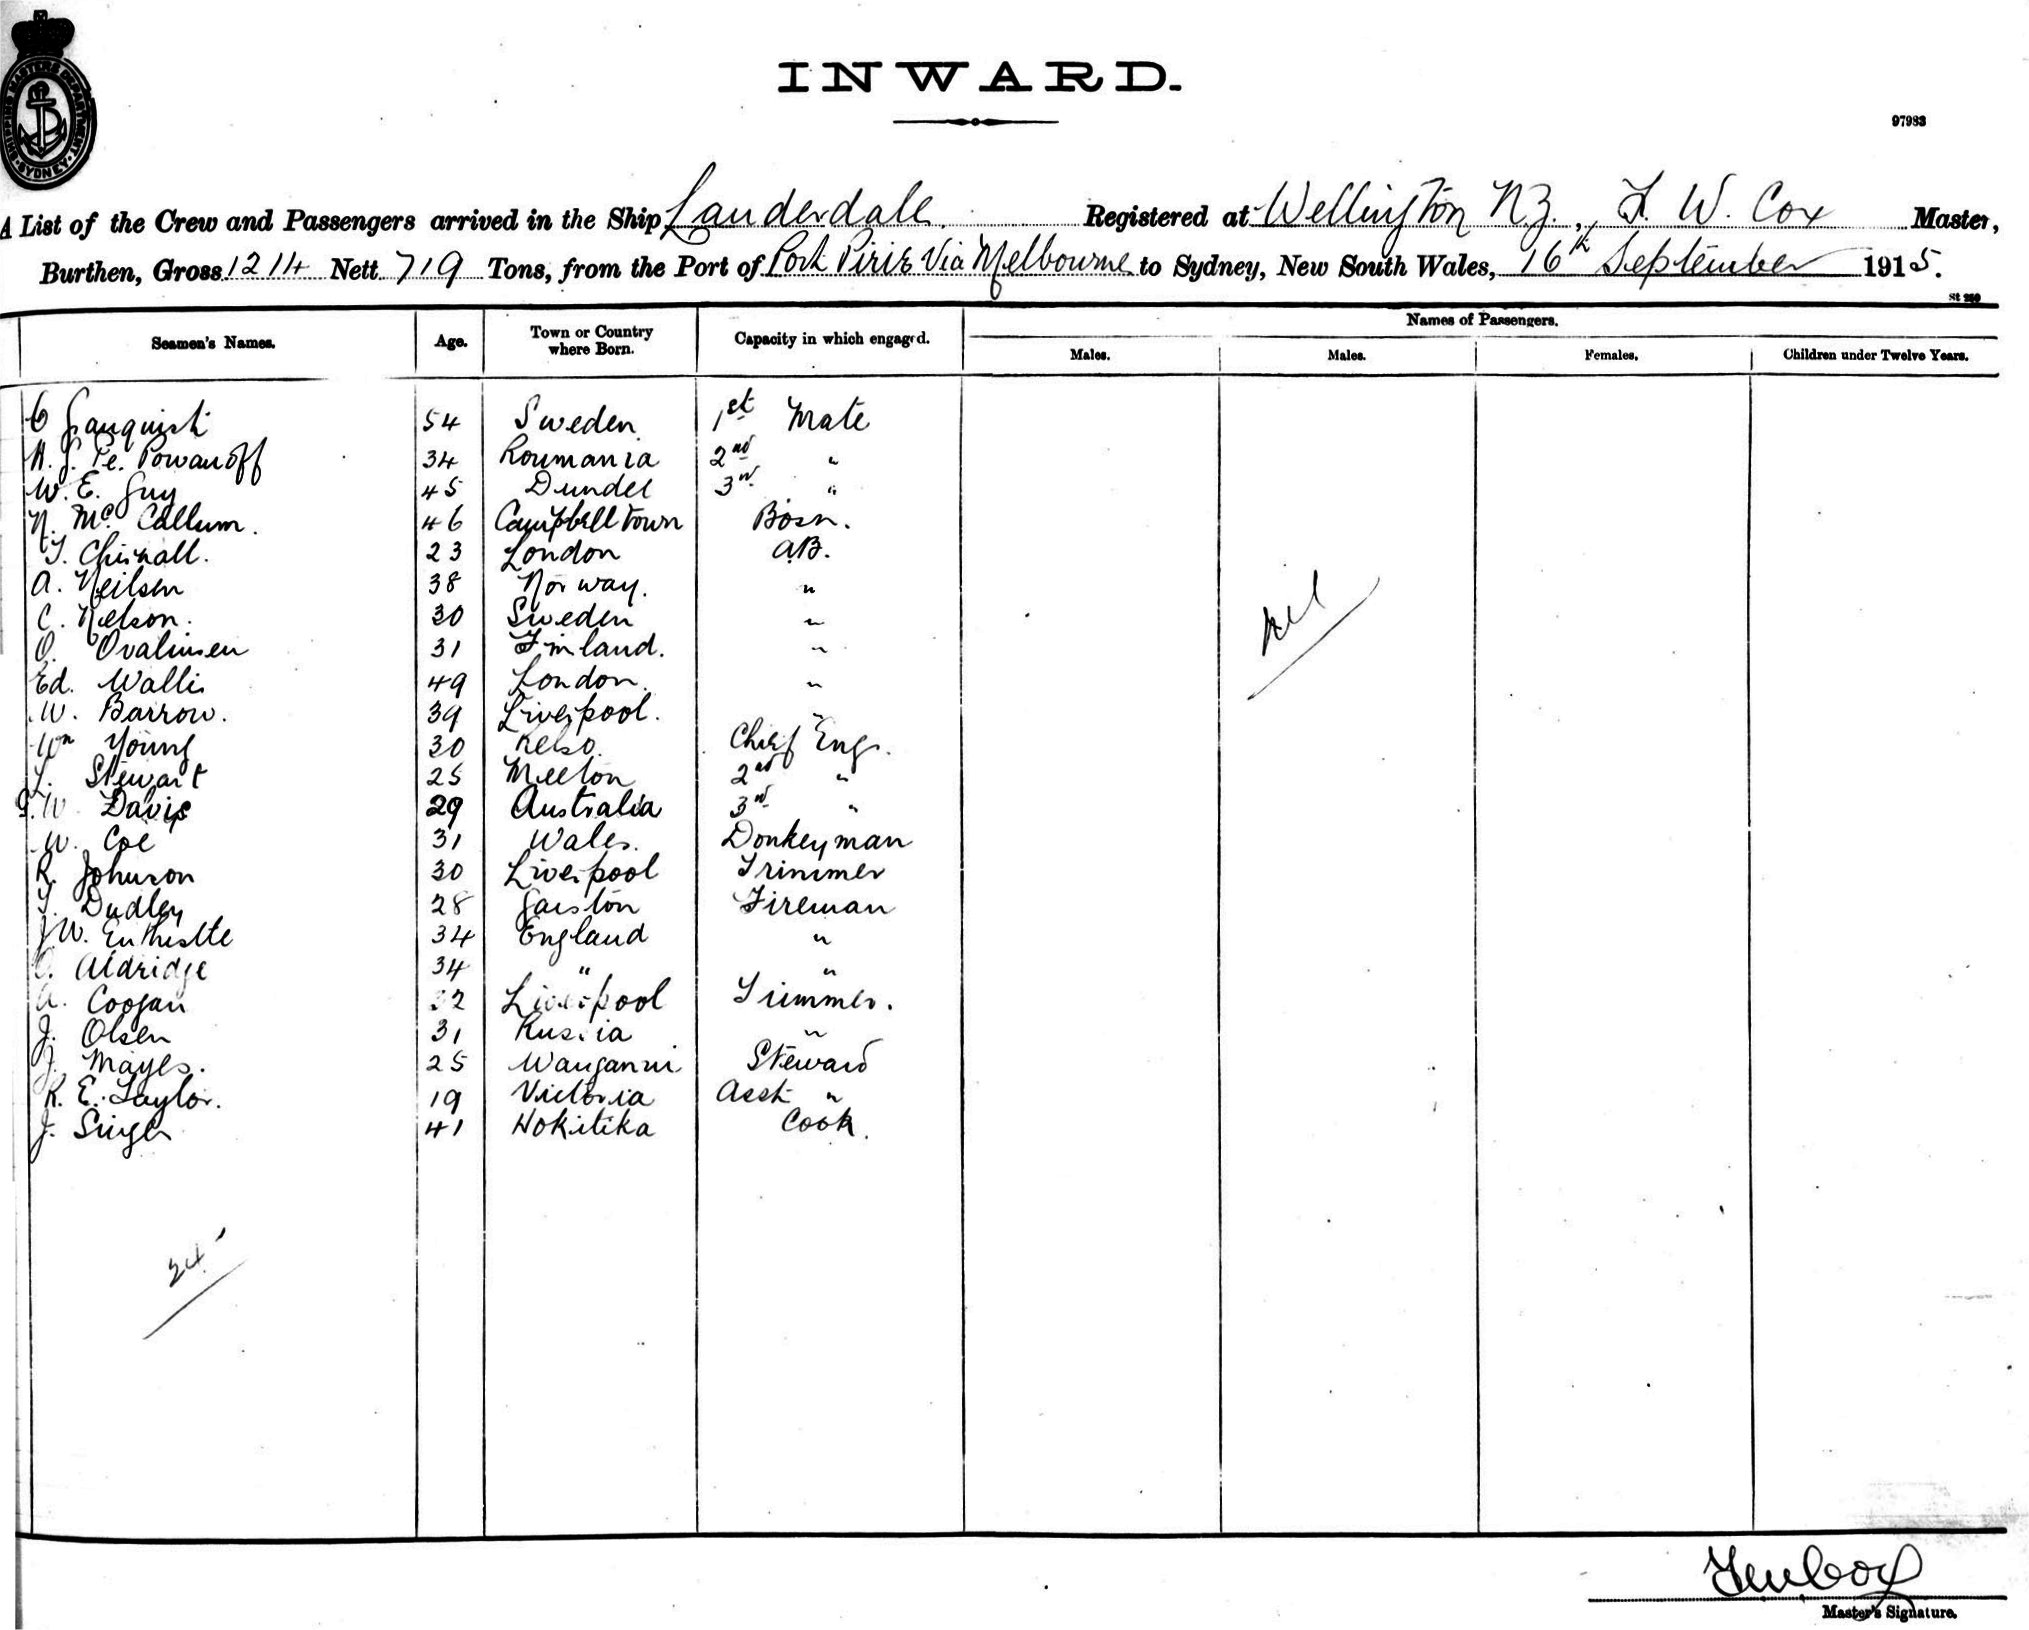 SHIPPING MASTERS DEPARTMENT SYDNEY
INWARD.
97983
A List of the Crew and Passengers arrived in the Ship Lauderdale Registered at Wellington N.Z., F. W. Cox Master,
Burthen, Gross 1214 Nett 719 Tons, from the Port of Port Pirie Via Melbourne to Sydney, New South Wales, 16th September 1915.
Names of Passengers.
Seamen's Names. Age. Town or Country where Born. Capacity in which engaged. Males. Males. Females. Children under Twelve Years.
C 54 Sweden 1st Mate
34 Roumania 2nd "
W. E. Guy 45 Dundee 3rd "
N. Mc Callum. 46 Campbelltown Bosn.
T. Chisnall. 23 London A.B.
A. Neilsen 38 Norway. "
C. Nelson. 30 Sweden "
O. 31 Finland. "
Ed. Wallis 49 London. "
W. Barrow. 39 Liverpool. "
Wm Young 30 Kelso. Chief Engr.
L. Stewart 25 2nd "
W Davis 29 Australia 3rd "
W. Coe 31 Wales. Donkeyman
R. Johnson 30 Liverpool Trimmer
T. Dudley 28 Garston Fireman
J W. Enthistle 34 England "
Aldridge 34 " "
A. Coogan 32 Liverpool Trimmer.
J. Olsen 31 Russia "
J. Mayes. 25 Wanganui Steward
R. E. Taylor. 19 Victoria Asst "
J. Singer 41 Hokitika Cook.
Nil
24
Master's Signature.